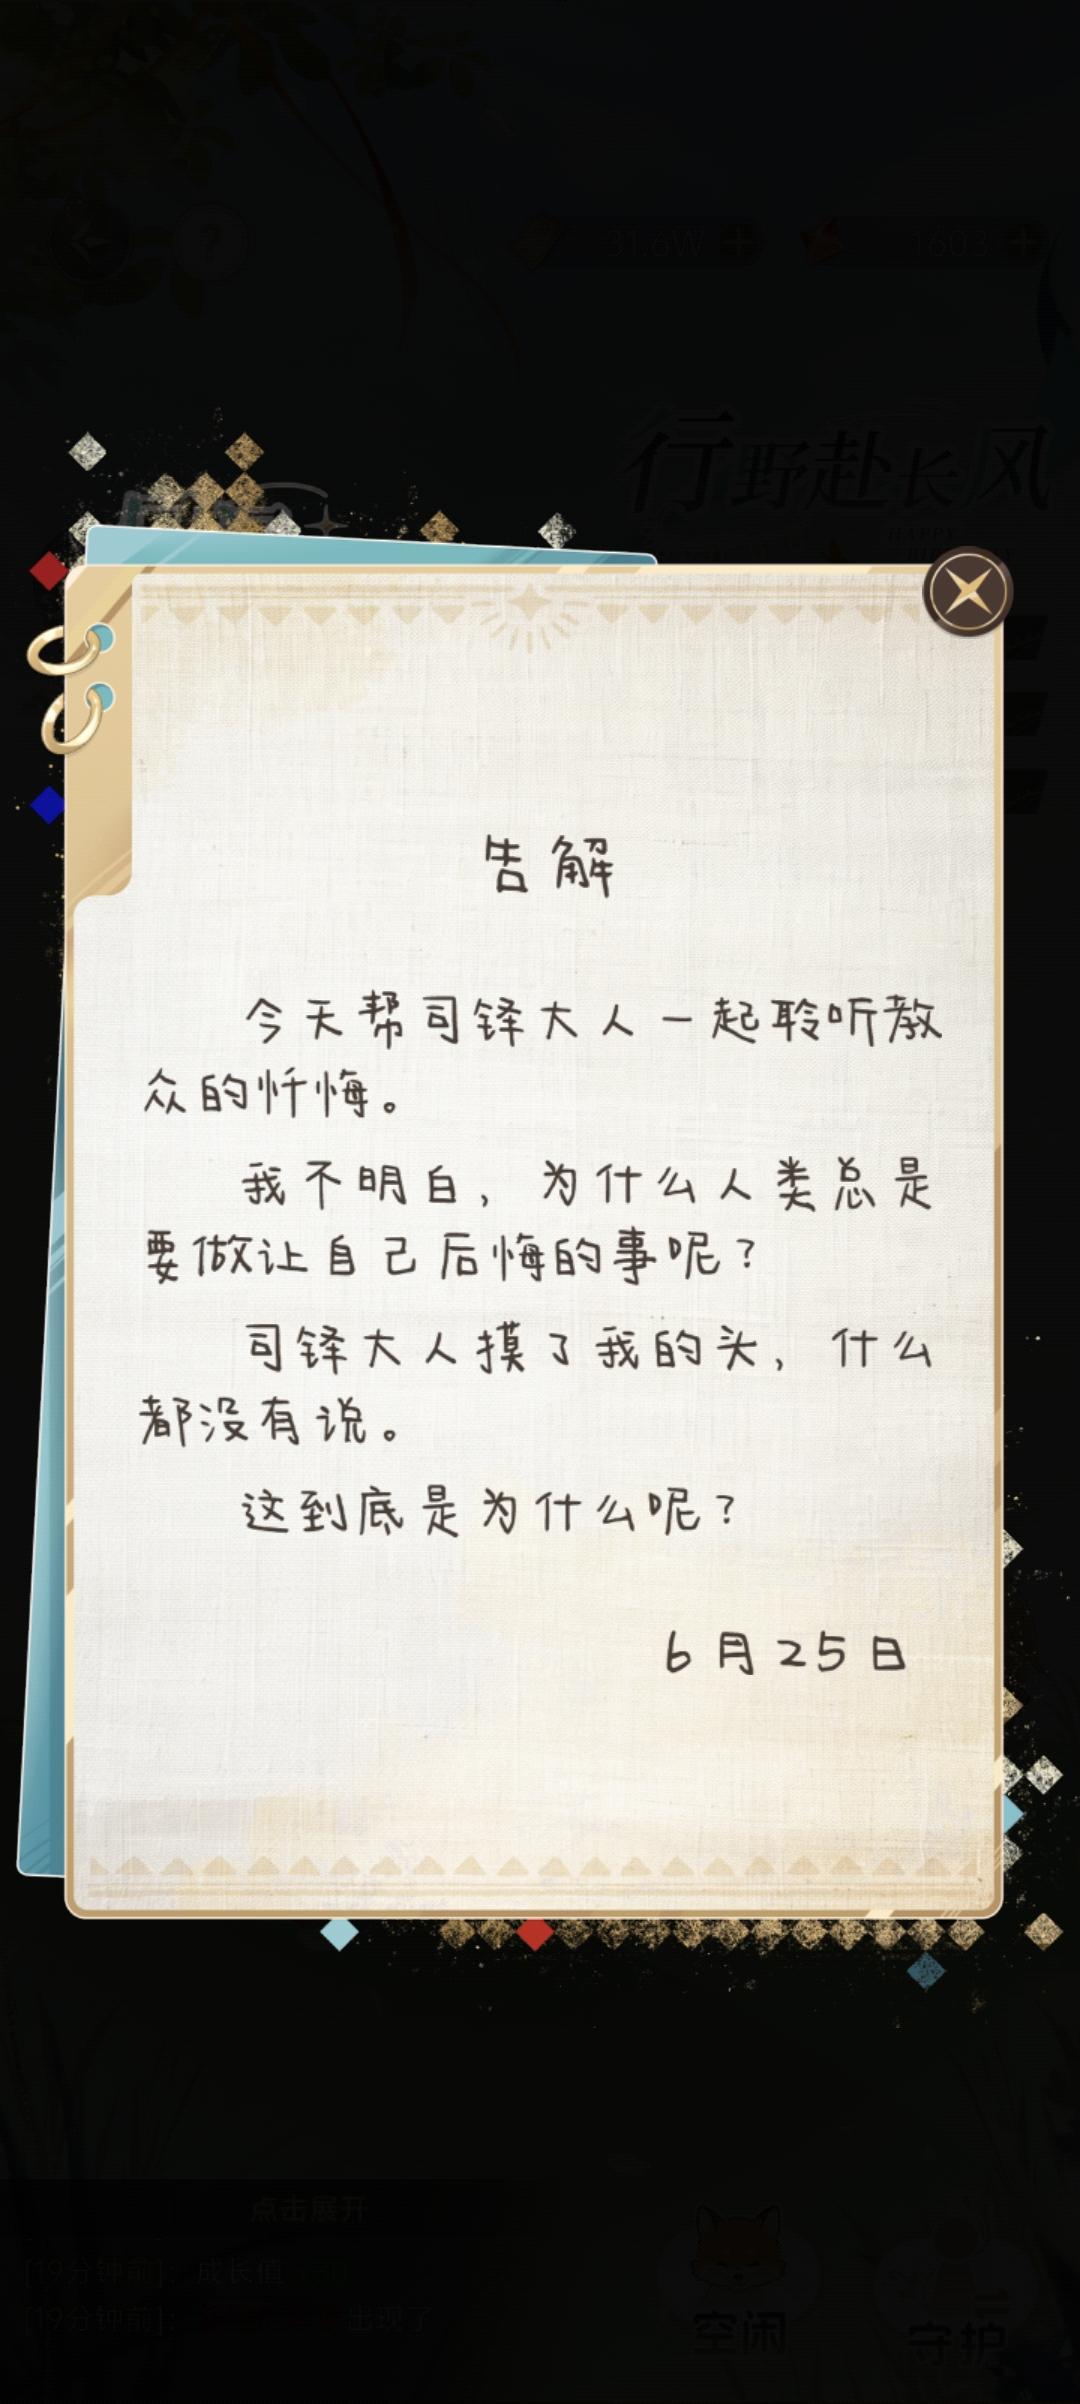 31.6W
1603
行野赴长风
HAPPY
告解
今天帮司铎大人一起聆听教
众的忏悔。
我不明白，为什么人类总是
要做让自己后悔的事呢？
司铎大人摸了我的头，什么
都没有说。
这到底是为什么呢？
6月25日
点击展开
[19分钟前]：成长值
[19分钟前]：
出现了
空闲
守护